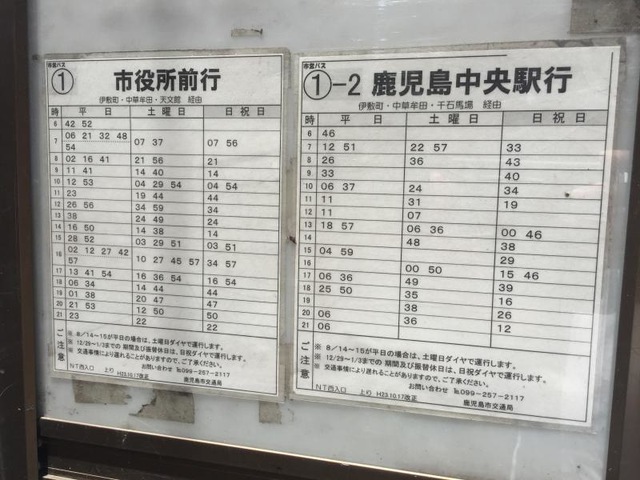 市営バス
① 市役所前行
伊敷町・中草牟田・天文館 経由
時 平 日 土 曜 日 日 祝 日
6 42 52
7 06 21 32 48 54 07 37 07 56
8 02 16 41 21 56 21
9 11 41 14 40 14
10 12 53 04 29 54 04 54
11 23 19 44 44
12 26 56 34 59 34
13 38 24 49 24
14 16 50 14 38 14
15 28 52 03 29 51 03 51
16 02 12 27 42 57 10 27 45 57 34 57
17 13 41 54 16 36 54 16 54
18 06 34 14 44 24
19 01 38 20 47
20 21 53 12 50 50
21 23 22 22
ご注意
※ 8/14~15が平日の場合は、土曜日ダイヤで運行します。
※ 12/29~1/3までの 期間及び振替休日は、日祝ダイヤで運行します。
※ 交通事情により遅れることがありますので、ご了承ください。
お問い合わせ ℡099-257-2117
NT西入口 より H23.10.17改正 鹿児島市交通局
市営バス
①-2 鹿児島中央駅行
伊敷町・中草牟田・千石馬場 経由
時 平 日 土 曜 日 日 祝 日
6 46
7 12 51 22 57 33
8 26 36 43
9 33 40
10 06 37 24 34
11 11 31 19
12 11 07
13 18 57 06 36 00 46
14 48 38
15 04 59 29
16 00 50 15 46
17 06 36 49 39
18 25 50 35 16
19 38 26
20 06 36 12
21 06
ご注意
※ 8/14~15が平日の場合は、土曜日ダイヤで運行します。
※ 12/29~1/3までの 期間及び振替休日は、日祝ダイヤで運行します。
※ 交通事情により遅れることがありますので、ご了承ください。
お問い合わせ ℡099-257-2117
NT西入口 より H23.10.17改正 鹿児島市交通局